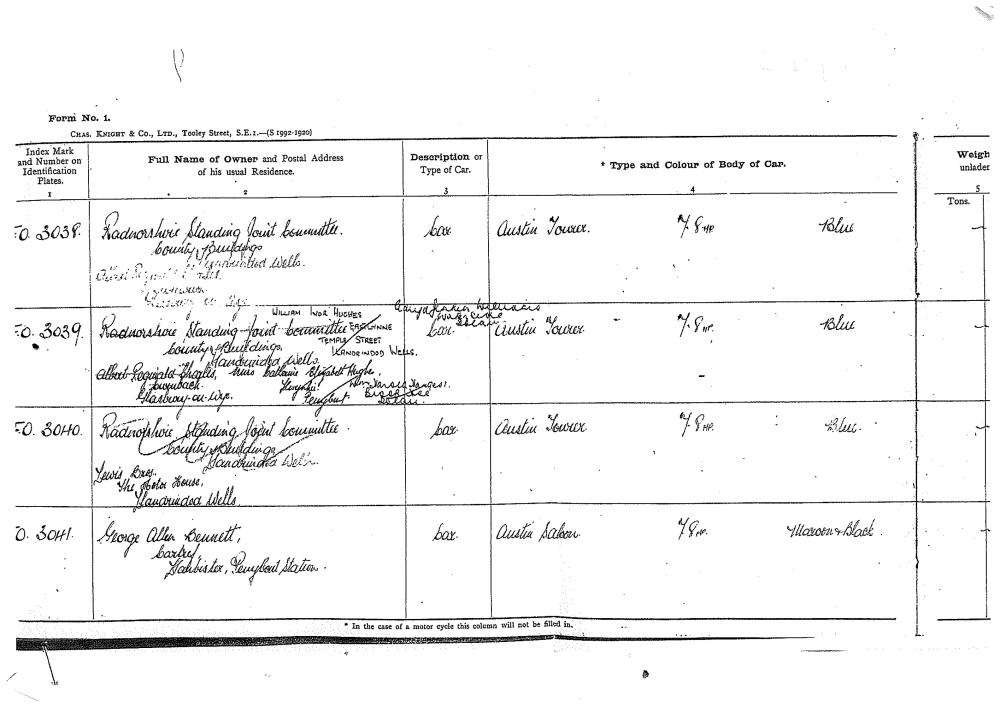 Form No. 1.
CHAS. KNIGHT & CO., LTD., Tooley Street, S.E.1.—(S 1992-1920)
Index Mark and Number on Identification Plates.
Full Name of Owner and Postal Address of his usual Residence.
Description or Type of Car.
* Type and Colour of Body of Car.
Weigh
unladen
1 2 3 4 5
Tons.
FO. 3038. Radnorshire Standing Joint Committee. Car Austin Tourer. 7/8 HP Blue
County Buildings
Llandrindod Wells.
WILLIAM IVOR HUGHES
FO. 3039. Radnorshire Standing Joint Committee Car Austin Tourer. 7/8 HP. Blue
TEMPLE STREET
County Buildings,
LLANDRINDOD WELLS.
Llandrindod Wells.
Albert Reginald Charles, Miss Elizabeth Hughes,
Glasbury-on-Wye. Penybont
FO. 3040. Radnorshire Standing Joint Committee. Car Austin Tourer 7/8 HP. Blue.
County Buildings
Llandrindod Wells.
Lewis Bros.
The Motor House,
Llandrindod Wells.
O. 3041. George Allen Bennett, Car. Austin Saloon. 7/8 HP. Maroon & Black.
Llanbister, Penybont Station.
* In the case of a motor cycle this column will not be filled in.